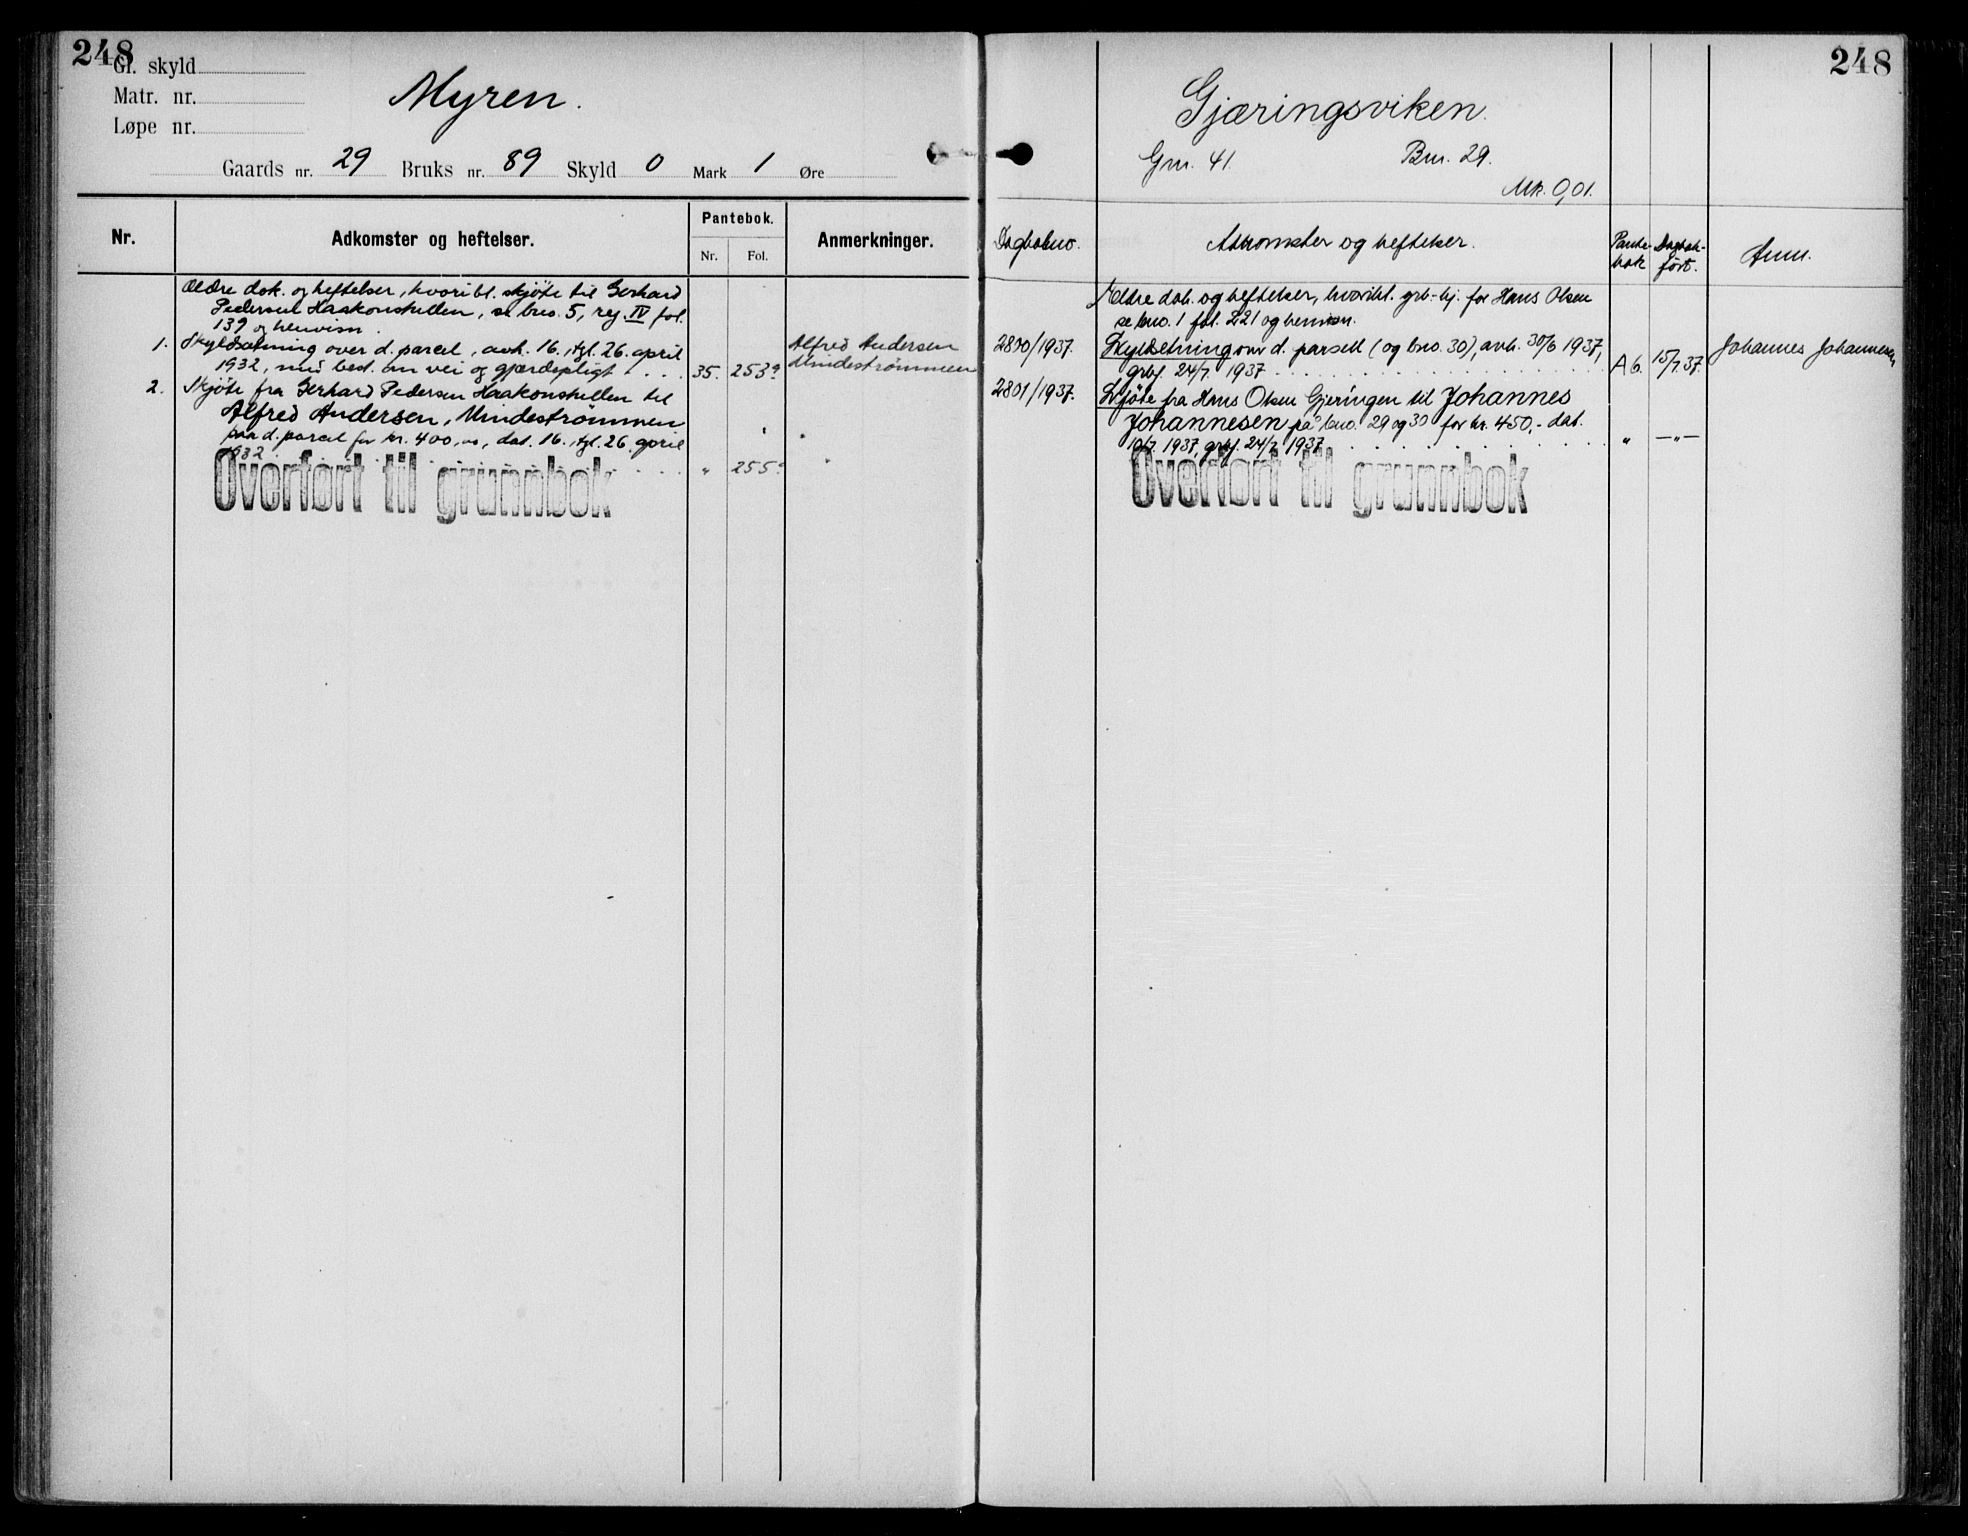 248
Gl. skyld
Matr. nr.
Løpe nr.
Myren.
Gaards nr. 29 Bruks nr. 89 Skyld 0 Mark 1 Øre
Nr.
Adkomster og heftelser.
Pantebok.
Nr. Fol.
Anmerkninger.
Ældre dok. og heftelser, hvoribl. skjøte til Gerhard
Pedersen Haakonshellen, se bno. 5, reg. IV fol.
139 og henvisn.
1. Skyldsætning over d. parcel, avh. 16., tgl. 26. april
1932, med best. om vei og gjærdepligt . . . 35. 253a
Alfred Andersen
Mindestrømmen
2. Skjøte fra Gerhard Pedersen Haakonshellen til
Alfred Andersen, Mindestrømmen
paa d. parcel for kr. 400,oo, dat. 16., tgl. 26. april
1932 . . . " 255a
Overført til grunnbok
248
Gjæringsviken.
Gnr. 41. Bnr. 29.
Mk. 0,01.
Dagbokno.
Adkomster og heftelser.
Pante-
bok
Dagbok-
ført.
Anm.
Ældre dok. og heftelser, hvoribl. grb.-hj. for Hans Olsen
se bno. 1 fol. 221 og henvisn.
2800/1937. Skyldsetning over d. parsell (og bno. 30), avh. 30/6 1937,
grbf. 24/7 1937 . . . A 6. 15/7 37.
Johannes Johannesen
2801/1937. Skjøte fra Hans Olsen Gjeringen til Johannes
Johannesen på bno. 29 og 30 for kr. 450,- dat.
10/7 1937, grbf. 24/7 1937 . . . " —"—
Overført til grunnbok